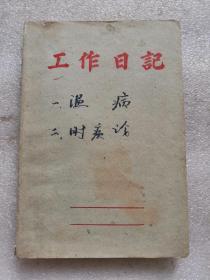 工作日記
一、温病
二、时疾论